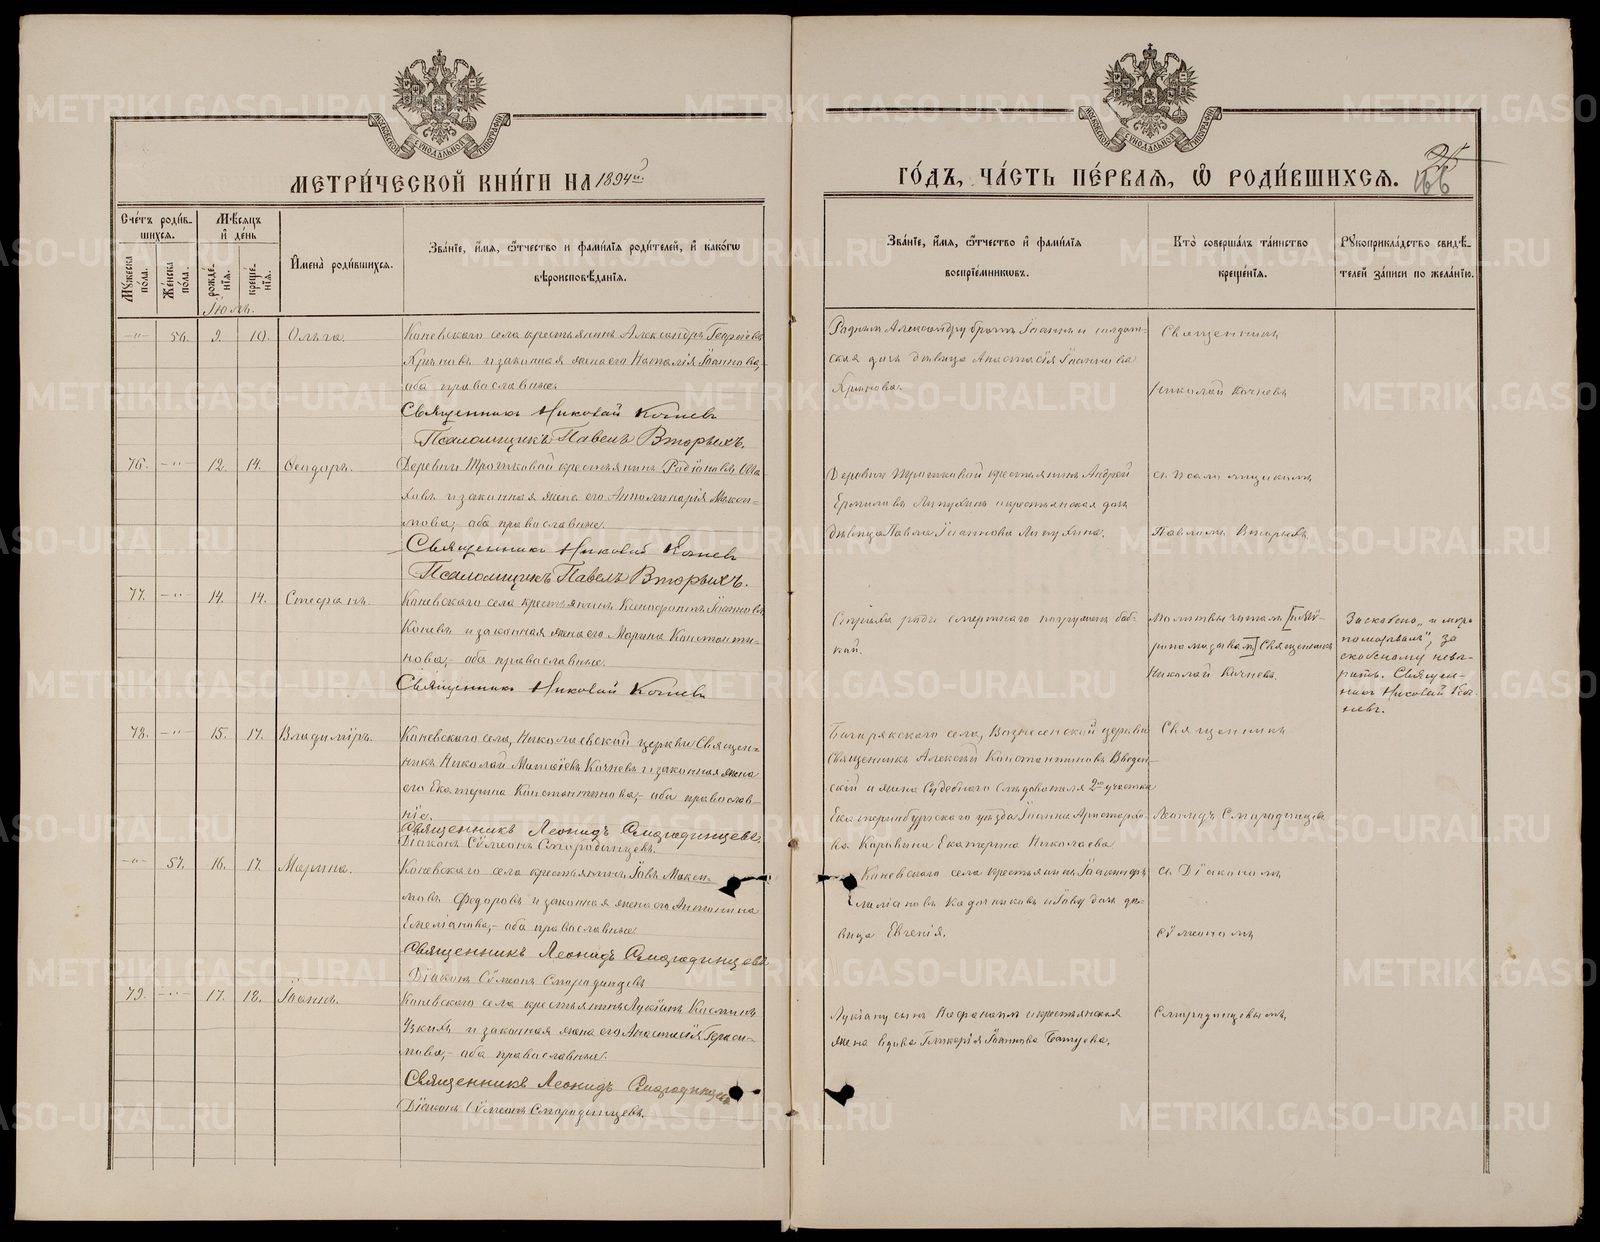 МЕТРИ́ЧЕСКОЙ КНИ́ГИ НА 1894й
ГО́ДЪ, ЧА́СТЬ ПЕ́РВАЯ, Ѡ РОДИ́ВШИХСЯ.
166
Сче́тъ роди́в-
шихся.
Мѣ́сяцъ
и҆ де́нь
Му́жеска
по́ла.
Же́нска
по́ла.
рожде́-
нїя.
креще́-
нїя.
И҆мена̀ роди́вшихся.
Зва́нїе, и҆́мя, ѻ҆́тчество и фами́лїя роди́телей, и҆ како́гѡ
вѣроисповѣ́данїя.
Зва́нїе, и҆́мя, ѻ҆́тчество и҆ фами́лїя
воспрїе́мниковъ.
Кто̀ соверша́лъ та́инство
креще́нїя.
Рꙋкоприкла́дство свидѣ́-
телей за́писи по жела́нїю.
Іюль.
-"- 56. 9. 10. Ольга.
Коневскаго села крестьянинъ Александръ Георгіевъ
и законная жена его Наталія Іоаннова,-
оба православные.
Священникъ Николай Кочневъ
Псаломщикъ Павелъ Вторыхъ.
Александру братъ Іоаннъ и солдат-
ская дочь дѣвица Анастасія Іоаннова
Священникъ
Николай Кочневъ
76. -"- 12. 14. Ѳеодоръ.
Деревни крестьянинъ
и законная жена его Апполинарія Макси-
мова,- оба православные.
Священникъ Николай Кочнев
Псаломщикъ Павелъ Вторыхъ.
Деревни крестьянинъ Андрей
Ермиловъ и крестьянская дочь
дѣвица Павла Іоаннова
съ псаломщикомъ
Павломъ Вторыхъ.
77. -"- 14. 14. Стефанъ.
Коневскаго села крестьянинъ Ксенофонтъ Іоанновъ
Коневъ и законная жена его Марина Константи-
нова,- оба православные.
Священникъ Николай Кочневъ
ради смертнаго погружена баб-
кой.
Молитвы читалъ
Священникъ
Николай Кочневъ.
За скобено „и мѵро
помазывалъ“, за
скобкому невѣ-
рить. Священ-
никъ Николай Коч-
невъ.
78. -"- 15. 17. Владиміръ.
Коневскаго села, Николаевской церкви Священ-
никъ Николай Матвіевъ Кочневъ и законная жена
его Екатерина Константинова,- оба православ-
ніе.
Священникъ Леонидъ Смородинцевъ
Діаконъ Сѵмеонъ Смородинцевъ.
Багарякскаго села, Вознесенской церкви
Священникъ Алексѣй Константиновъ Введен-
скій и жена Судебнаго Слѣдователя 2го участка
Екатеринбургскаго уѣзда Іоанна
Екатерина Николаева
Священникъ
Леонидъ Смородинцевъ
-"- 57. 16. 17. Марина.
Коневскаго села крестьянинъ Іовъ Макси-
мовъ Ѳедоровъ и законная жена его Антонина
Емеліанова,- оба православные.
Священникъ Леонидъ Смородинцевъ
Діаконъ Сѵмеонъ Смородинцевъ
Коневскаго села крестьянинъ
и Іову дочь дѣ-
вица Евгенія.
съ Діакономъ
Сѵмеономъ
79. -"- 17. 18. Іоаннъ.
Коневскаго села крестьянинъ Лукіанъ Косминъ
Узкихъ и законная жена его Анастасія Гераси-
мова,- оба православные.
Священникъ Леонидъ Смородинцевъ
Діаконъ Сѵмеонъ Смородинцевъ.
Лукіану сынъ и крестьянская
жена вдова Гликерія Іоаннова
Смородинцевымъ.
METRIKI.GASO-URAL.RU